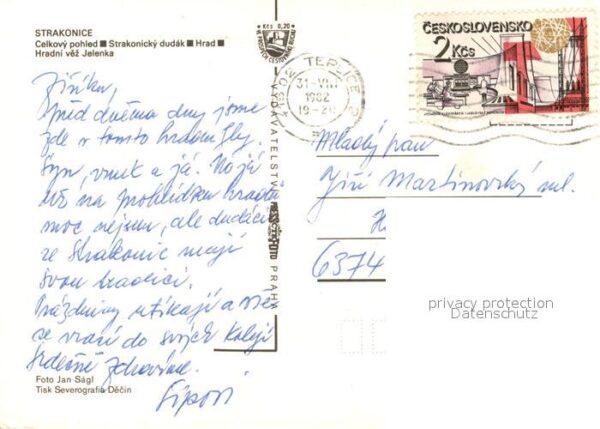 STRAKONICE
Celkový pohled ■ Strakonický dudák ■ Hrad ■
Hradní věž Jelenka
Jiříku,
před dvěma dny jsme
zde v tomto hradem šly.
Syn, vnuk a já. No já
už na prohlídku hradu
moc nejsem, ale dudáci
ze Strakonic mají
svou tradici.
Prázdniny utíkají a vše
se vrací do svých kolejí
Srdečně zdravíme.
Foto Jan Ságl
Tisk Severografia Děčín
Kčs 0,20
VYDAVATELSTVÍ
PRAHA
TEPLICE
31.VIII
1982
19-20
ČESKOSLOVENSKO
2 Kčs
Mladý pan
Jiří Martinovský ml.
H
6374
privacy protection
Datenschutz